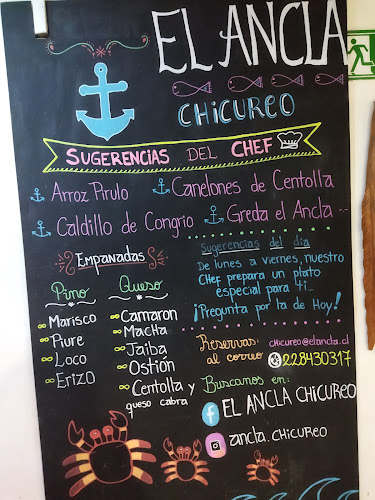 EL ANCLA
CHICUREO
SUGERENCIAS DEL CHEF
Arroz Pirulo
Canelones de Centolla
Caldillo de Congrio
Greda el Ancla
Empanadas
Pino
Marisco
Piure
Loco
Erizo
Queso
Camaron
Macha
Jaiba
Ostión
Centolla y
queso cabra
Sugerencias del día
De lunes a viernes, nuestro
Chef prepara un plato
especial para ti...
¡Pregunta por la de Hoy!
Reservas
al correo
chicureo@elancla.cl
228430317
Buscanos en:
EL ANCLA CHICUREO
ancla.chicureo